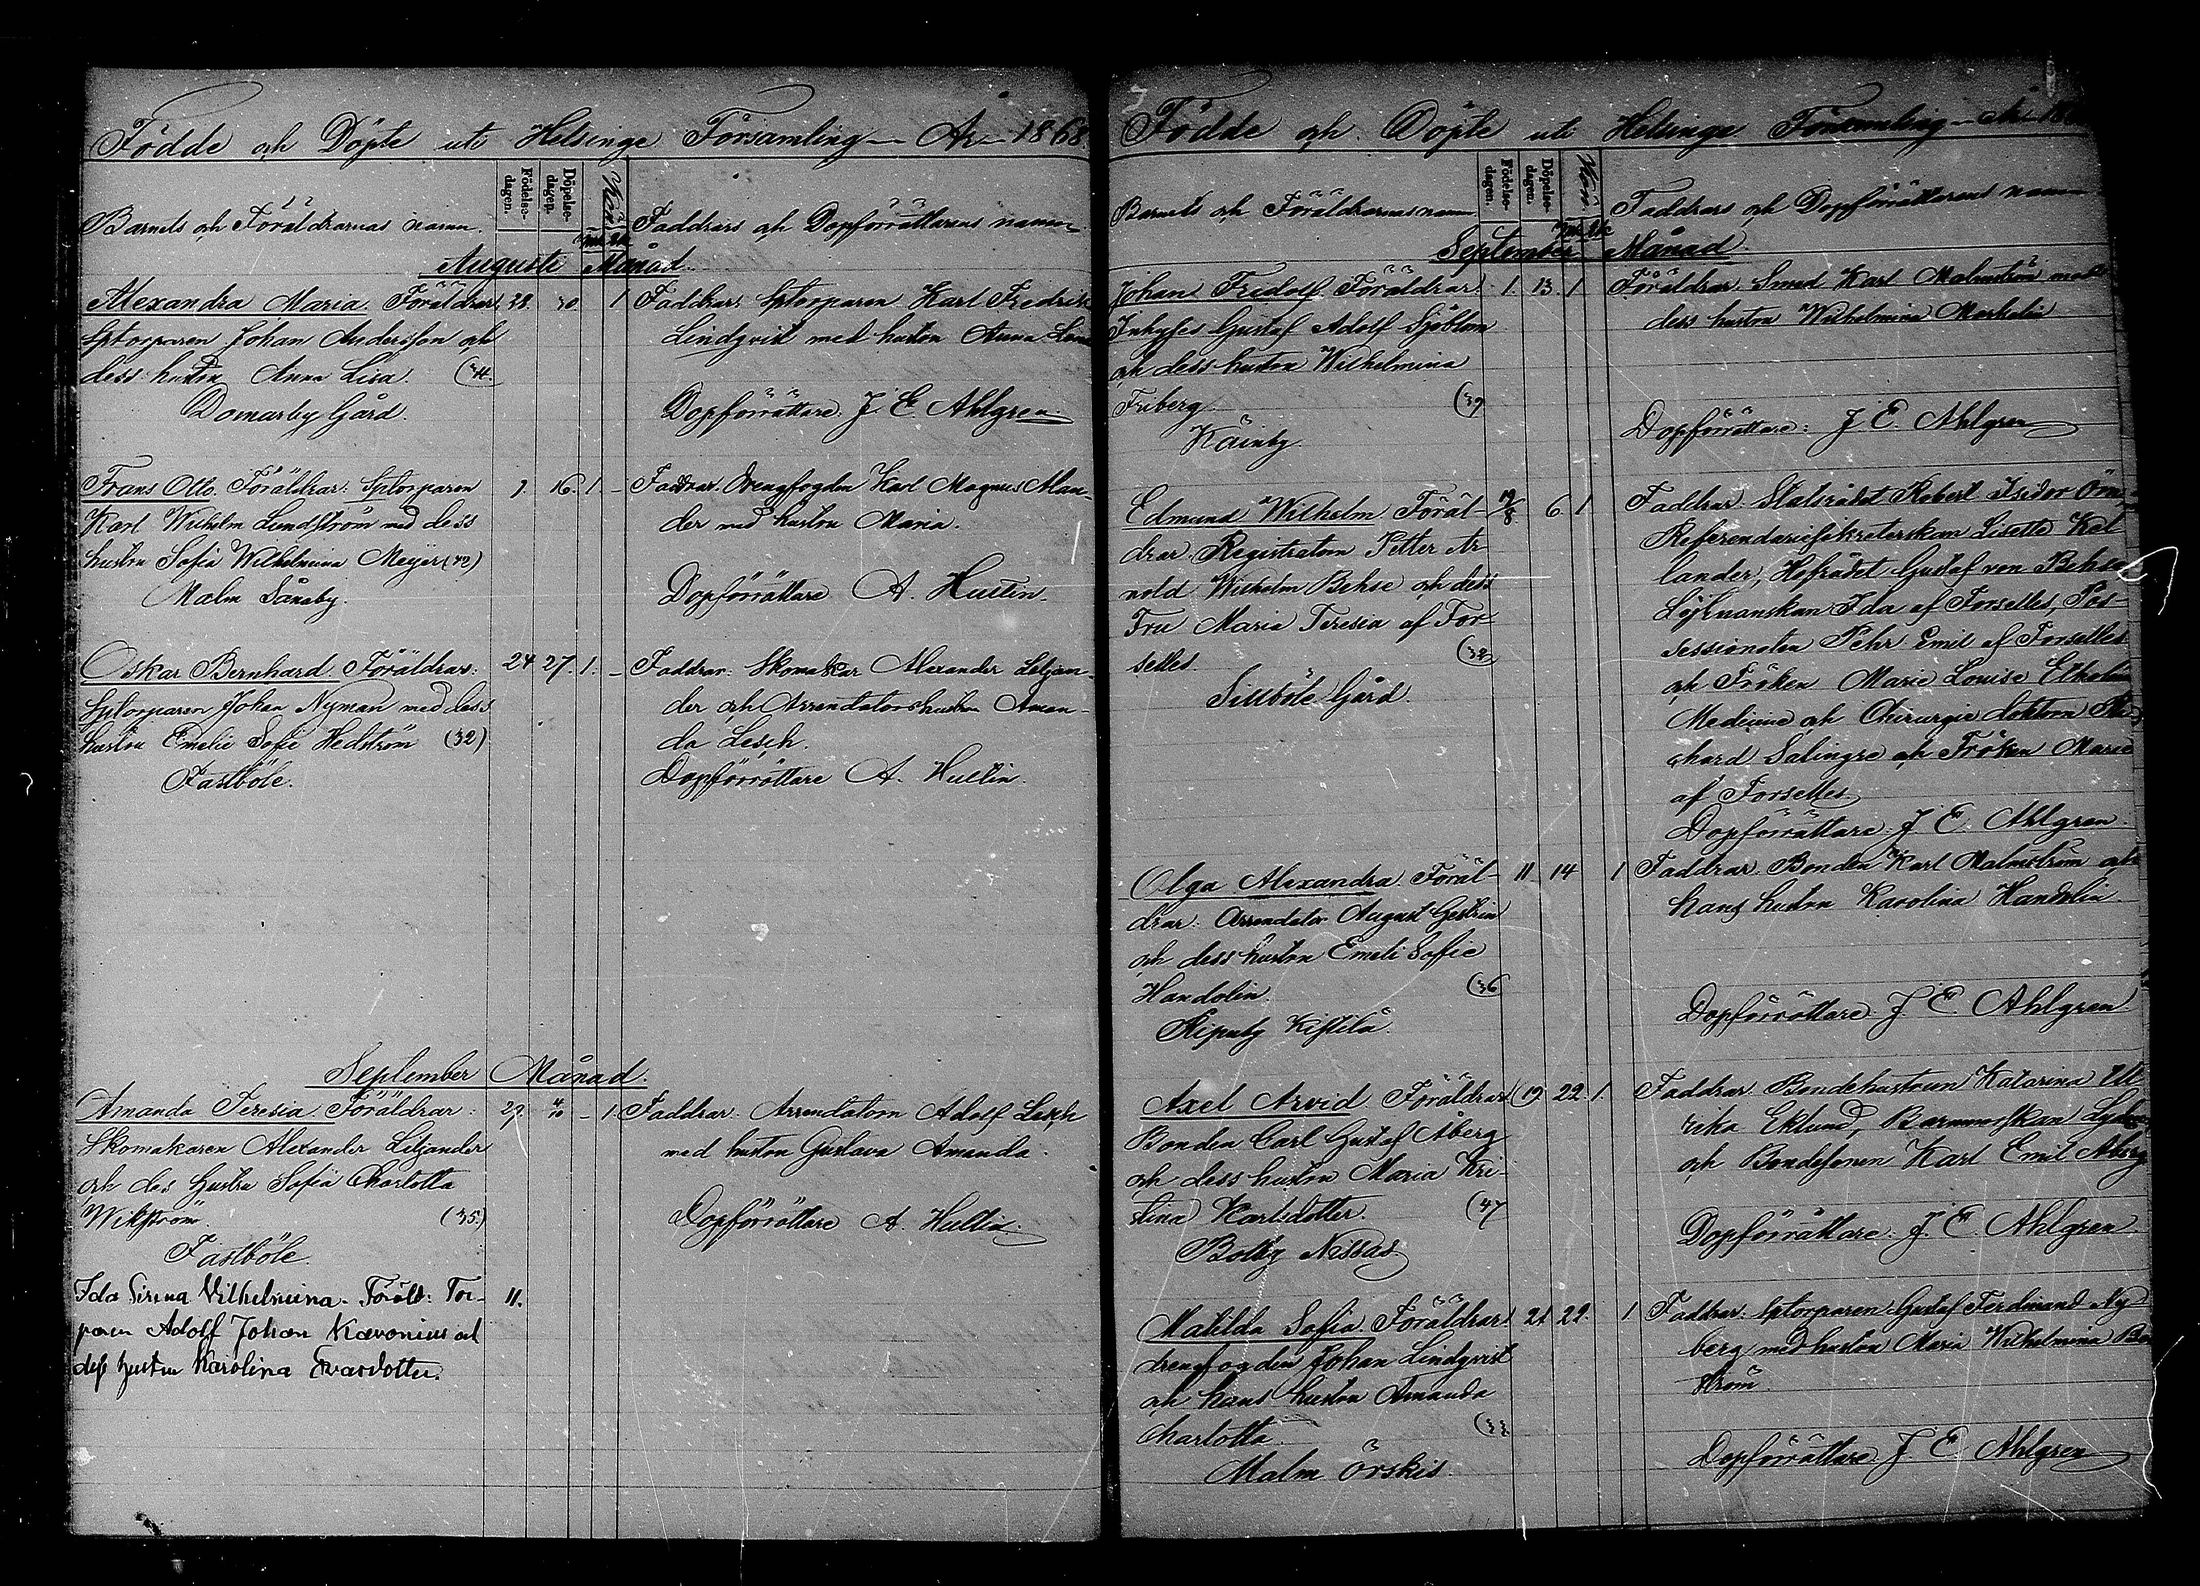 Födde och Döpte uti Helsinge Församling — År 1868
Barnets och Föräldrarnas namn.
Födelse-
dagen.
Döpelse-
dagen.
Kön
Faddrars och Dopförrättarens namn
Augusti Månad.
Alexandra Maria. Föräldrar 28. 30. 1 Faddrar: Sptorparen Karl Fredrik
Sptorparen Johan Andersson och Lindqvist med hustru Anna
dess hustru Anna Lisa. (34
Domarby Gård. Dopförrättare. J. E. Ahlgren
Frans Otto. Föräldrar: Sptorparen 7. 16. 1. – Faddrar. Drengfogden Karl Magnus Man-
Karl Wilhelm Lundström med dess der med hustru Maria.
hustru Sofia Wilhelmina Meijer (42)
Malm Sånaby. Dopförrättare A. Hultin.
Oskar Bernhard. Föräldrar: 24 27. 1. – Faddrar: Skomakar Alexander Litjan-
Sptorparen Johan Nyman med dess der och Arrendatorshustrun Aman-
hustru Emelie Sofie Hedström (32) da Lesch.
Fastböle. Dopförrättare A. Hultin.
September Månad.
Amanda Teresia. Föräldrar: 29. 4/10 – 1. Faddrar. Arrendatorn Adolf Lesch
Skomakaren Alexander Litjander med hustru Gustava Amanda.
och des hustru Sofia Charlotta
Wikström. (35) Dopförrättare A. Hultin.
Fastböle.
Ida Sirena Vilhelmina. Föräld: Tor- 11.
paren Adolf Johan Kavonius och
dess hustru Karolina Evasdotter.
Födde och Döpte uti Helsinge Församling — År 18
Barnets och Föräldrarnas namn
Födelse-
dagen.
Döpelse-
dagen.
Kön.
Faddrars och Dopförrättarens namn
September Månad
Johan Fridolf. Föräldrar 1. 13. 1 Föräldrar Smed Karl Malmström med
Inhyses Gustaf Adolf Sjöblom dess hustru Wilhelmina
och dess hustru Wilhelmina
Friberg. (39
Dopförrättare: J. E. Ahlgren
Edmund Wilhelm Föräl- 19/8 6. 1 Faddrar. Statsrådet Robert Isidor Örn
drar. Registratorn Petter Ar Referendariesekreterskan Lisette Kal
nold Wilhelm Behse och dess lander, Hofrådet Gustaf von Behse
Fru Maria Teresia af For- Ida af Forselles, Pos-
selles. (32 sessionaten Pehr Emil af Forselles
Sillböle Gård. och Fröken Marie Louise Etholén
Medicine och Chirurgie doktorn Ri-
chard Salingre och Fröken Marie
af Forselles
Dopförrättare. J. E. Ahlgren.
Olga Alexandra. Föräl- 11 14 1 Faddrar. Bonden Karl Malmström och
drar: Arrendator August Gestrin hans hustru Karolina Handolin.
och dess hustru Emeli Sofie
Handolin. (36
Ripuby Kistilä. Dopförrättare. J. E. Ahlgren
Axel Arvid. Föräldrar (19 22. 1. Faddrar. Bondehustrun Katarina Ul
Bonden Carl Gustaf Åberg rika Eklund, Barnmorskan
och dess hustru Maria Kri- och Bondesonen Karl Emil Åberg
stina Karlsdotter. (47
Botby Nissas Dopförrättare. J. E. Ahlgren
Matilda Sofia. Föräldrar 21 22. 1 Faddrar: Sptorparen Gustaf Ferdinand Ny
drengfogden Johan Lindqvist berg med hustru Maria Wilhelmina
och hans hustru Amanda ström
Charlotta. (33
Malm Örskis. Dopförrättare J. E. Ahlgren